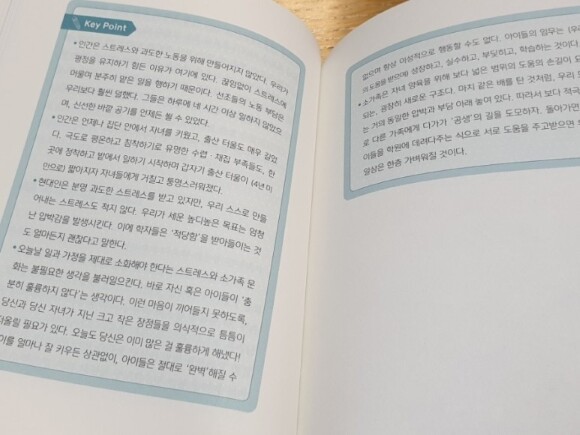 Key Point
• 인간은 스트레스와 과도한 노동을 위해 만들어지지 않았다. 우리가
평정을 유지하기 힘든 이유가 여기에 있다. 끊임없이 스트레스에
머물며 분주히 맡은 일을 행하기 때문이다. 선조들의 노동 부담은
우리보다 훨씬 덜했다. 그들은 하루에 네 시간 이상 일하지 않았으
며, 신선한 바깥 공기를 언제든 쐴 수 있었다.
• 인간은 언제나 집단 안에서 자녀를 키웠고, 출산 터울도 매우 잦았
다. 극도로 평온하고 침착하기로 유명한 수렵·채집 부족들도, 한
곳에 정착하고 밭에서 일하기 시작하며 갑자기 출산 터울이 (4년 이
안으로) 짧아지자 자녀들에게 거칠고 퉁명스러워졌다.
• 현대인은 분명 과도한 스트레스를 받고 있지만, 우리 스스로 만들
어내는 스트레스도 적지 않다. 우리가 세운 높디높은 목표는 엄청
난 압박감을 발생시킨다. 이에 학자들은 '적당함'을 받아들이는 것
도 얼마든지 괜찮다고 말한다.
• 오늘날 일과 가정을 제대로 소화해야 한다는 스트레스와 소가족 문
화는 불필요한 생각을 불러일으킨다. 바로 자신 혹은 아이들이 '충
분히 훌륭하지 않다'는 생각이다. 이런 마음이 끼어들지 못하도록,
당신과 당신 자녀가 지닌 크고 작은 장점들을 의식적으로 틈틈이
떠올릴 필요가 있다. 오늘도 당신은 이미 많은 걸 훌륭하게 해냈다!
이를 얼마나 잘 키우든 상관없이, 아이들은 절대로 '완벽'해질 수
없으며 항상 이성적으로 행동할 수도 없다. 아이들의 임무는 (우리
의 도움을 받으며) 성장하고, 실수하고, 부딪히고, 학습하는 것이다.
• 소가족은 자녀 양육을 위해 보다 넓은 범위의 도움의 손길이
는, 굉장히 새로운 구조다. 마치 같은 배를 탄 것처럼, 우리
는 거의 동일한 압박과 부담 아래 놓여 있다. 따라서 보다 적극
로 다른 가족에게 다가가 '공생'의 길을 도모하자. 돌아가면
이들을 학원에 데려다주는 식으로 서로 도움을 주고받으면
일상은 한층 가벼워질 것이다.